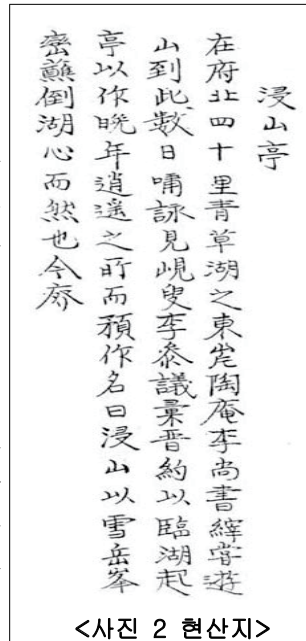 浸山亭
在府北四十里青草湖之東岸陶庵李尚書縡嘗遊
山到此數日嘯詠見峴叟李叅議墓晋約以臨湖起
亭以作晩年逍遥之所而預作名曰浸山以雪岳峯
巒蘸倒湖心而然也今廢
<사진 2 현산지>